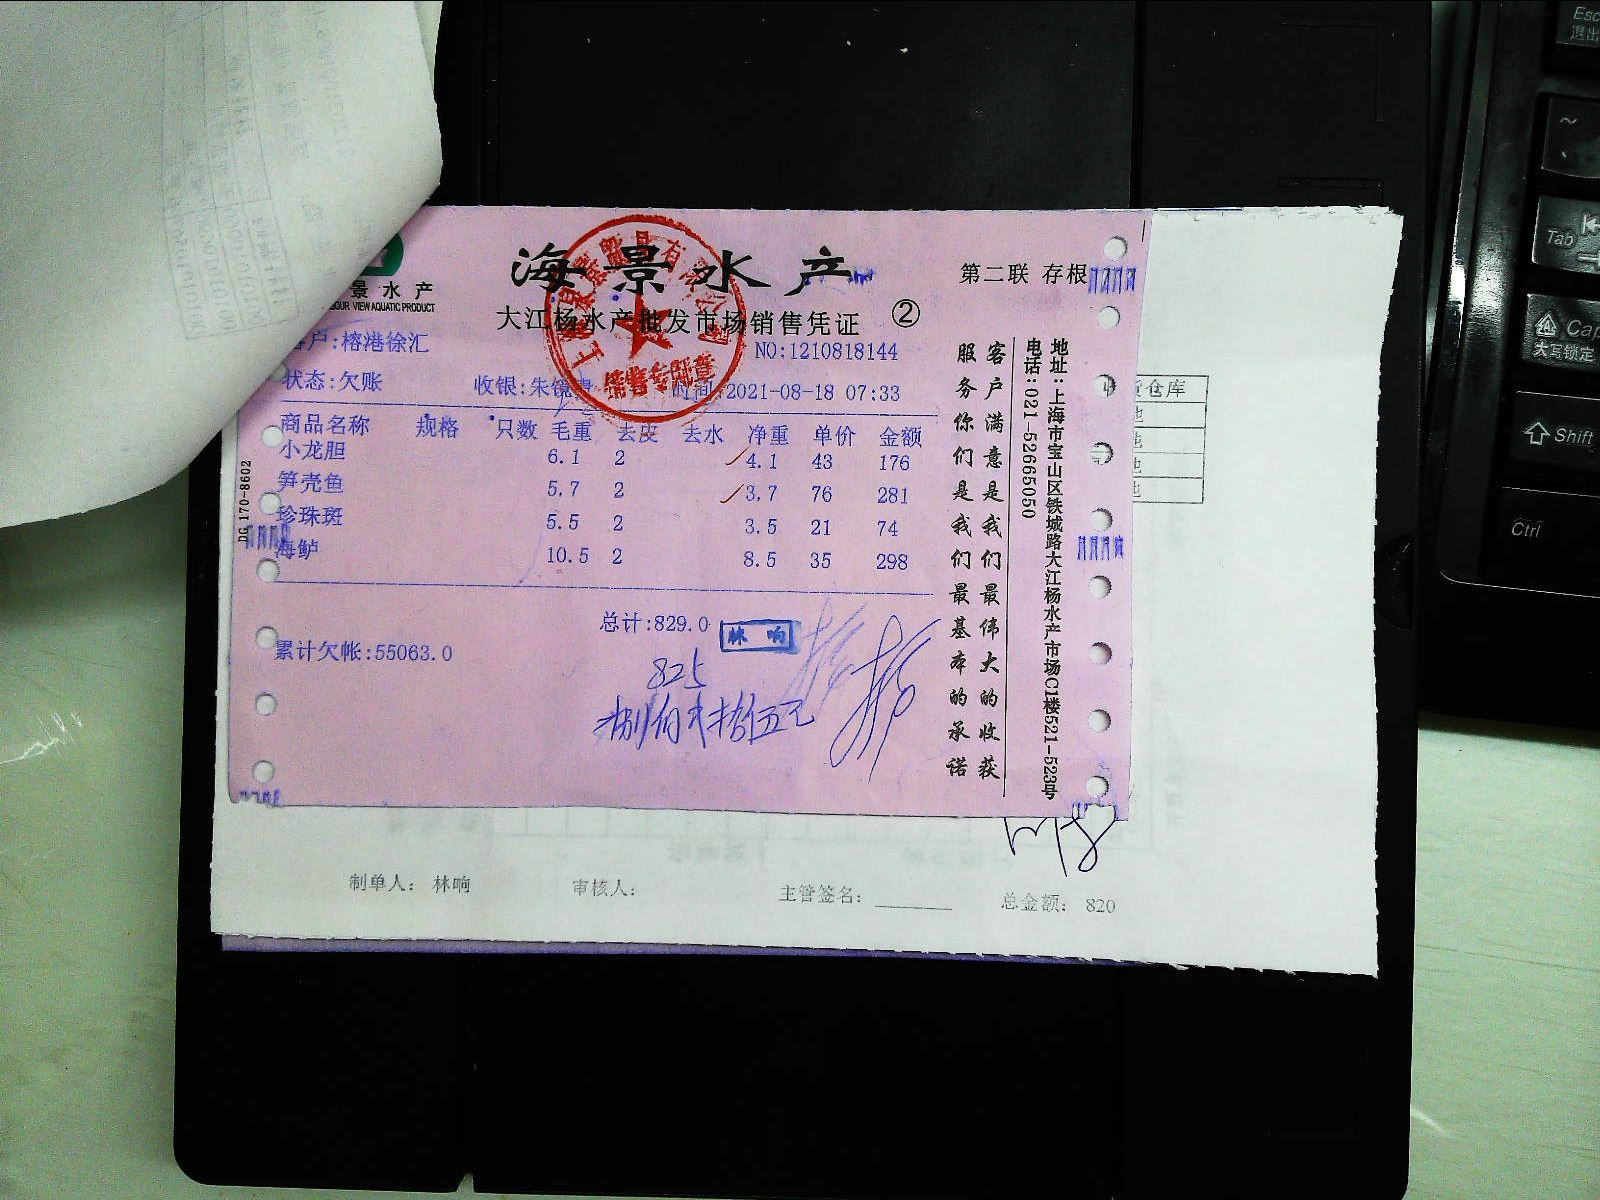 海景水产
第二联 存根
景水产
OUR VIEW AQUATIC PRODUCT
大江杨水产批发市场销售凭证 ②
户:榕港徐汇
NO:1210818144
状态:欠账 收银:朱锦 时间:2021-08-18 07:33
商品名称 规格 只数 毛重 去皮 去水 净重 单价 金额
小龙胆 6.1 2 4.1 43 176
笋壳鱼 5.7 2 3.7 76 281
珍珠斑 5.5 2 3.5 21 74
海鲈 10.5 2 8.5 35 298
总计:829.0
林响
累计欠帐:55063.0
825
捌佰贰拾伍元
DG 170-8602
销售专用章
客户满意是我们最伟大的收获
服务你们是我们最基本的承诺
地址:上海市宝山区铁城路大江杨水产市场C1楼521-523号
电话:021-52665050
货仓库
制单人: 林响 审核人: 主管签名: 总金额: 820
Esc
退出
~
Tab
Cap
大写锁定
Shift
Ctrl